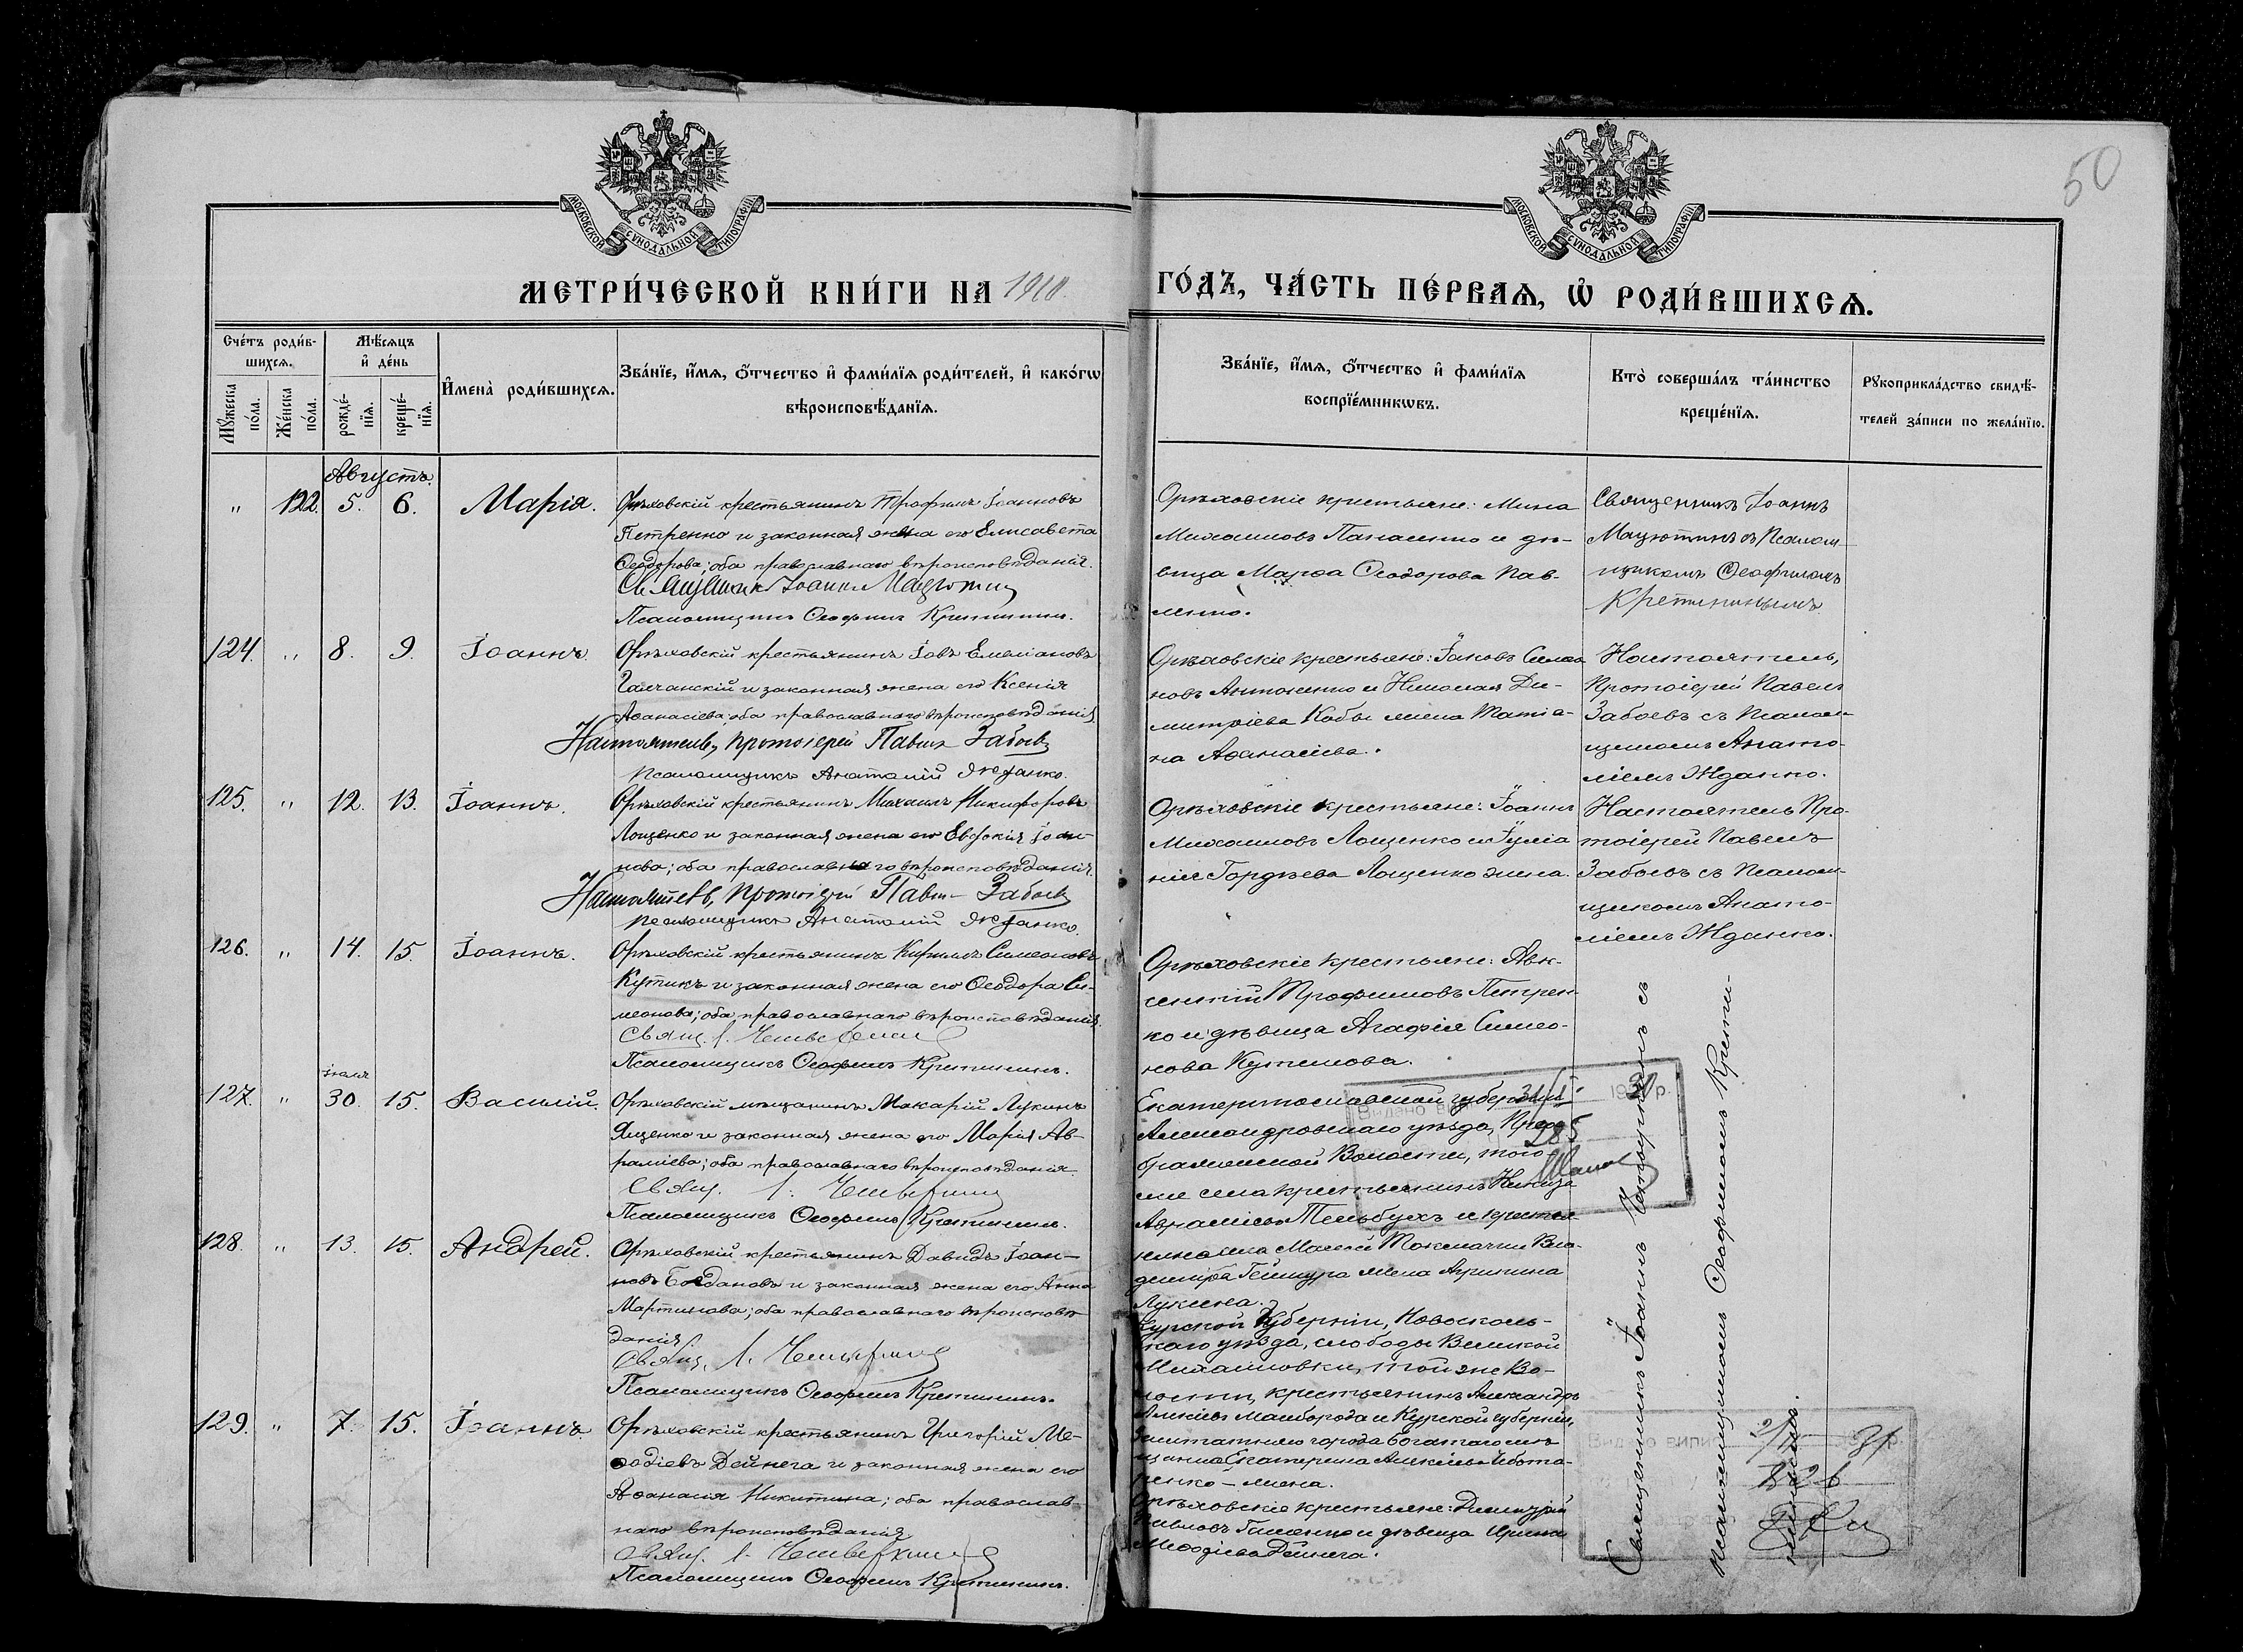 50
МОСКОВСКОЙ СѴНОДАЛЬНОЙ ТИПОГРАФІИ
МОСКОВСКОЙ СѴНОДАЛЬНОЙ ТИПОГРАФІИ
МЕТРИ́ЧЕСКОЙ КНИ́ГИ НА 1910
ГО́ДЪ, ЧА́СТЬ ПЕ́РВАѦ, Ѽ РОДИ́ВШИХСѦ.
Сче́тъ роди́в-
шихсѧ.
Мꙋ́жеска по́ла.
Же́нска по́ла.
Мѣ́сѧцъ
и҆ де́нь
рожде́-
нїѧ.
креще́-
нїѧ.
И҆мена̀ роди́вшихсѧ.
Зва́нїе, и҆́мѧ, ѻ҆́тчество и҆ фами́лїѧ роди́телей, и҆ како́гѡ
вѣроисповѣ́данїѧ.
Зва́нїе, и҆́мѧ, ѻ҆́тчество и҆ фами́лїѧ
воспрїе́мникѡвъ.
Кто̀ соверша́лъ та́инство
креще́нїѧ.
Рꙋкоприкла́дство свидѣ́-
телей за́писи по жела́нїю.
Августъ.
" 122. 5. 6. Марія.
Орѣховскій крестьянинъ Трофимъ Іоанновъ
Петренко и законная жена его Елисавета
Ѳеодорова; оба православнаго вѣроисповѣданія.
Священникъ Іоаннъ Мацютинъ
Псаломщикъ Ѳеофилъ Кретининъ.
Орѣховскіе крестьяне: Мина
Михаиловъ Панасенко и дѣ-
вица Марѳа Ѳеодорова Пав-
ленко.
Священникъ Іоаннъ
Мацютинъ съ Псалом-
щикомъ Ѳеофиломъ
Кретининымъ
124. " 8. 9. Іоаннъ.
Орѣховскій крестьянинъ Іовъ Емеліановъ
Галчанскій и законная жена его Ксенія
Аѳанасіева; оба православнаго вѣроисповѣданія.
Настоятель, Протоіерей Павелъ Забоевъ
Псаломщикъ Анатолій Жданко.
Орѣховскіе крестьяне: Іаковъ Симео
новъ Антоненко и Николая Ди-
митріева Кобы жена Татіа-
на Аѳанасіева.
Настоятель,
Протоіерей Павелъ
Забоевъ съ Псалом-
щикомъ Анато-
ліемъ Жданко.
125. " 12. 13. Іоаннъ.
Орѣховскій крестьянинъ Михаилъ Никифоровъ
Лощенко и законная жена его Евдокія Іоан-
нова; оба православнаго вѣроисповѣданія.
Настоятель, Протоіерей Павелъ Забоевъ
Псаломщикъ Анатолій Жданко.
Орѣховскіе крестьяне: Іоаннъ
Михаиловъ Лощенко и Іуліа
нія Гордѣева Лощенко жена.
Настоятель Про-
тоіерей Павелъ
Забоевъ съ Псалом-
щикомъ Анато-
ліемъ Жданко.
126. " 14. 15. Іоаннъ.
Орѣховскій крестьянинъ Кириллъ Симеоновъ
Кутикъ и законная жена его Ѳеодора Си-
меонова; оба православнаго вѣроисповѣданія.
Свящ. І. Четверкинъ
Псаломщикъ Ѳеофилъ Кретининъ.
Орѣховскіе крестьяне: Авк-
сентій Трофимовъ Петрен-
ко и дѣвица Агафія Симео-
нова Кутикова.
127. " 30. 15. Василій.
Орѣховскій мѣщанинъ Макарій Лукинъ
Яценко и законная жена его Марія Ав-
раміева; оба православнаго вѣроисповѣданія
Свящ. І. Четверкинъ
Псаломщикъ Ѳеофилъ Кретининъ.
Екатеринославской губерніи
Александровскаго уѣзда, Прео-
браженской Волости, того
же села крестьянинъ
Токмачки Вла-
диміра жена Агрипина
Лукина.
Видано
285
128. " 13. 15. Андрей.
Орѣховскій крестьянинъ Давидъ Іоан-
новъ Богдановъ и законная жена его Анна
Мартинова; оба православнаго вѣроисповѣ-
данія
Свящ. І. Четверкинъ
Псаломщикъ Ѳеофилъ Кретининъ.
Курской Губерніи, Новоосколь-
скаго уѣзда, слободы Великой
Михайловки, той же Во-
лости, крестьянинъ Александръ
Майборода и Курской губерніи,
заштатнаго города Богатаго мѣ
щанка Екатерина Алексіева
жена.
129. " 7. 15. Іоаннъ.
Орѣховскій крестьянинъ Григорій Ме-
ѳодіевъ Дейнега и законная жена его
Аѳанасія Никитина; оба православ-
наго вѣроисповѣданія
Свящ. І. Четверкинъ
Псаломщикъ Ѳеофилъ Кретининъ.
Орѣховскіе крестьяне: Димитрій
Павловъ и дѣвица Ирина
Меѳодіева Дейнега.
Священникъ Іоаннъ Четверкинъ съ
псаломщикомъ Ѳеофиломъ Крети-
нинымъ.
Видано
826